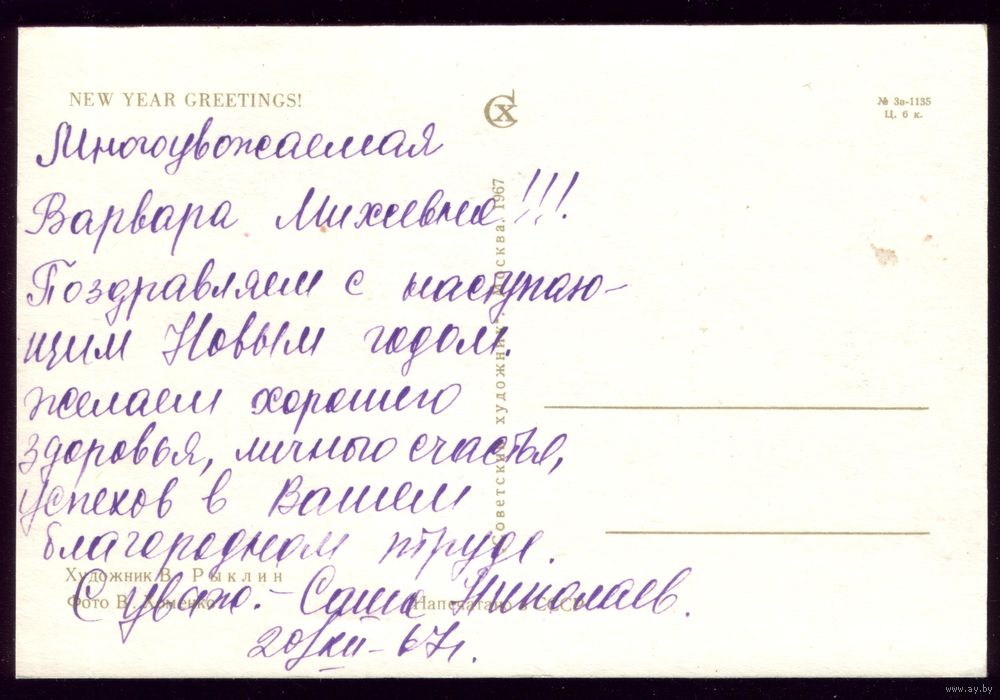 NEW YEAR GREETINGS!
СХ
№ 3в-1135
Ц. 6 к.
Многоуважаемая
Варвара Михеевна!!!
Поздравляем с наступаю-
щим Новым годом.
Желаем хорошего
здоровья, личного счастья,
успехов в Вашем
благородном труде.
С уваж. – Саша Николаев.
20/XII – 67г.
Советский художник. Москва. 1967
Художник В. Рыклин
Фото В. Хоменко
Напечатано в СССР
www.ay.by